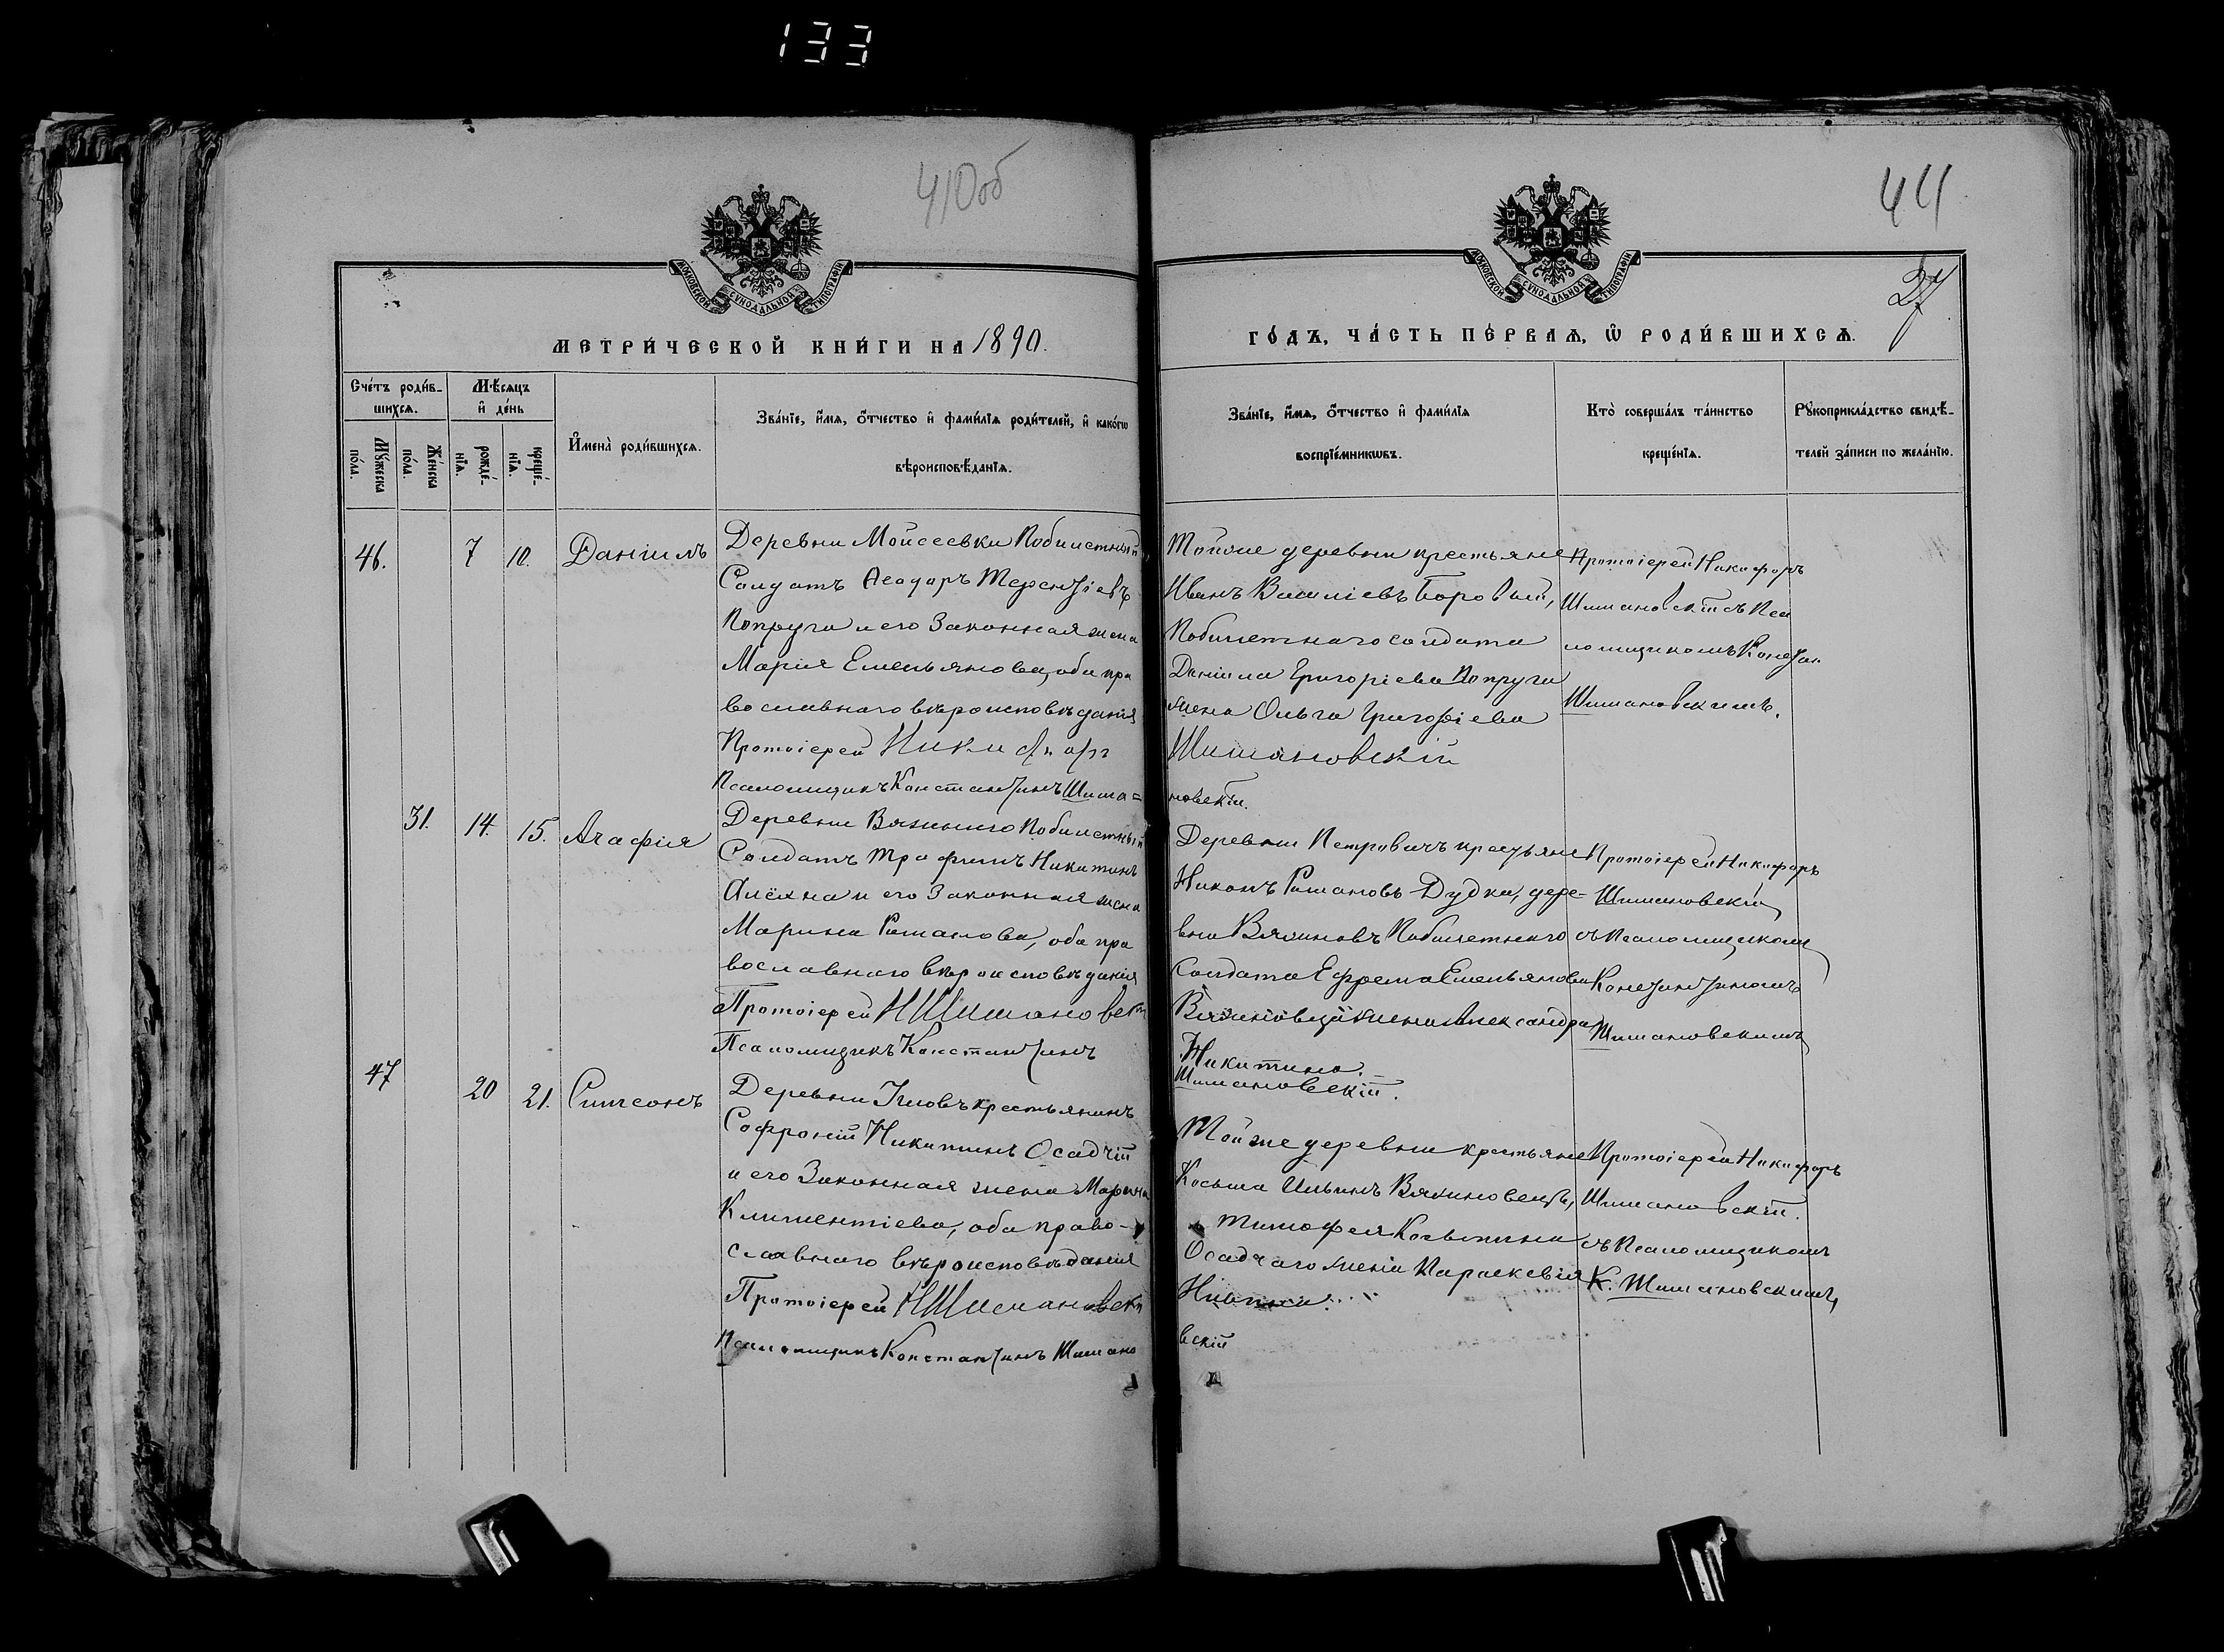 133
41об
44
27
МОСКОВСКОЙ СѴНОДАЛЬНОЙ ТИПОГРАФІИ
МОСКОВСКОЙ СѴНОДАЛЬНОЙ ТИПОГРАФІИ
МЕТРИ́ЧЕСКОЙ КНИ́ГИ НА 1890.
ГО́ДЪ, ЧА́СТЬ ПЕ́РВАѦ, Ѡ҆ РОДИ́ВШИХСѦ.
Сче́тъ роди́в-
шихсѧ.
Мꙋ́жеска
по́ла.
Же́нска
по́ла.
Мѣ́сѧцъ
и҆ де́нь
рожде́-
нїѧ.
креще́-
нїѧ.
И҆мена̀ роди́вшихсѧ.
Зва́нїе, и҆́мѧ, ѻ҆́тчество и҆ фами́лїѧ роди́телей, и҆ како́гѡ
вѣроисповѣ́данїѧ.
Зва́нїе, и҆́мѧ, ѻ҆́тчество и҆ фами́лїѧ
воспрїе́мникѡвъ.
Кто̀ соверша́лъ та́инство
креще́нїѧ.
Рꙋкоприкла́дство свидѣ́-
телей за́писи по жела́нїю.
46.
7
10.
Даніилъ
Деревни Мойсеевки Побилетный
Солдатъ Ѳеодоръ Терентіевъ
Попруга и его Законная жена
Марія Емельянова, оба пра
вославнаго вѣроисповѣданія
Протоіерей Никифоръ
Псаломщикъ Константинъ Шима=
Тойже деревни крестьяне
Иванъ Василіевъ Боровый,
Побилетнаго солдата
Даніила Григоріева Попруги
жена Ольга Григоріева
Шимановскій
новскій.
Протоіерей Никифоръ
Шимановскій съ Пса
ломщикомъ Констан
Шимановскимъ.
31.
14.
15.
Агафія
Деревни Вязынь Побилетный
Солдатъ Трофимъ Никитинъ
Алёхна и его Законная жена
Марина Романова, оба пра
вославнаго вѣроисповѣданія
Протоіерей Н Шимановскі
Псаломщикъ Константинъ
Деревни Петровичъ крестьяне
Никонъ Романовъ Дудка, дере-
вни Побилетнаго
Солдата Ефрема Емельянова
жена Александра
Никитина.
Шимановскій.
Протоіерей Никифоръ
Шимановскій
съ Псаломщикомъ
Константиномъ
Шимановскимъ
47
20
21.
Симеонъ
Деревни крестьянинъ
Софроній Никитинъ Осадчій
и его Законная жена Марина
Климентіева, оба право-
славнаго вѣроисповѣданія
Протоіерей Н Шимановскі
Псаломщикъ Константинъ Шимано
Тойже деревни крестьяне
Косьма Ильинъ Вязыновецъ,
Тимофея Косьмина
Осадчаго жена Параскевія
вскій
Протоіерей Никифоръ
Шимановскій.
съ Псаломщикомъ
К. Шимановскимъ